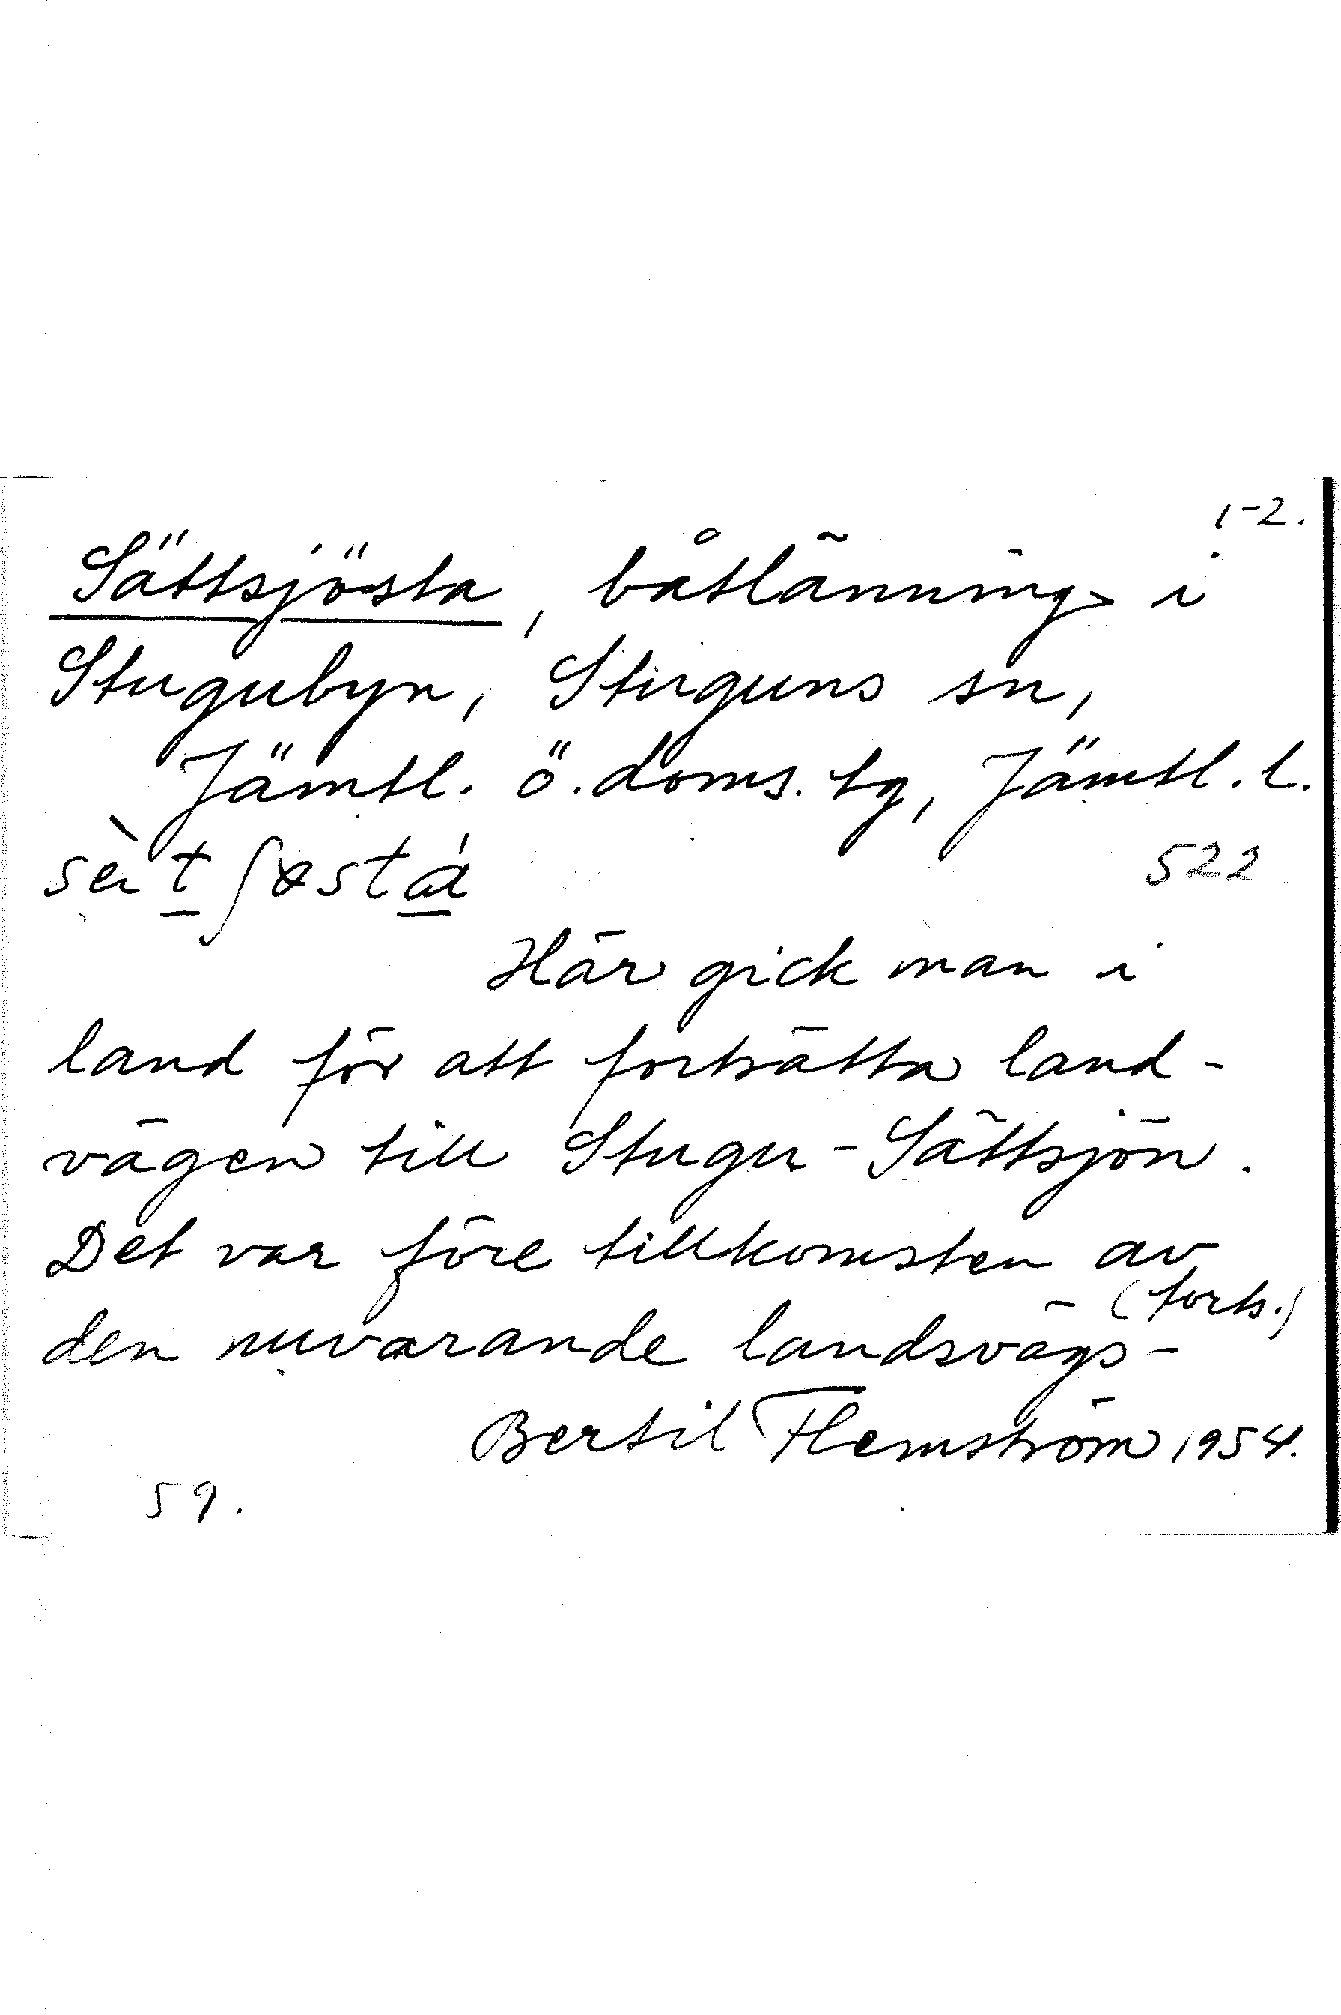 1-2.
Sättsjösta, båtlänning i
Stugubyn, Stuguns sn,
Jämtl. ö. doms. tg, Jämtl. l.
522
Här gick man i
land för att fortsätta land-
vägen till Stugu-Sättsjön.
Det var före tillkomsten av
den nuvarande landsvägs-
(forts.)
Bertil Flemström 1954.
59.